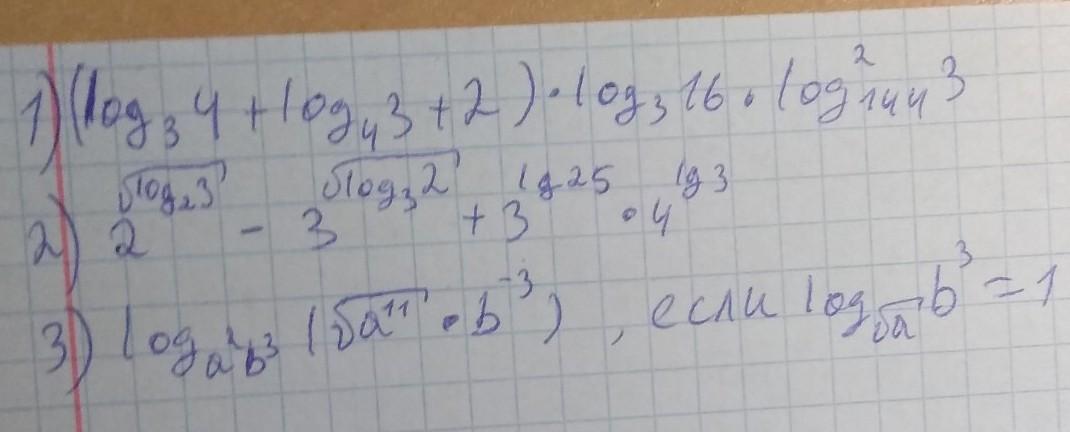 1) (log₃4 + log₄3 + 2) · log₃16 · log²₁₄₄3
2) 2^√(log₂3) - 3^√(log₃2) + 3^(lg 25) · 4^(lg 3)
3) log_(a²b³) (√(a¹¹) · b⁻³), если log_(√a) b³ = 1